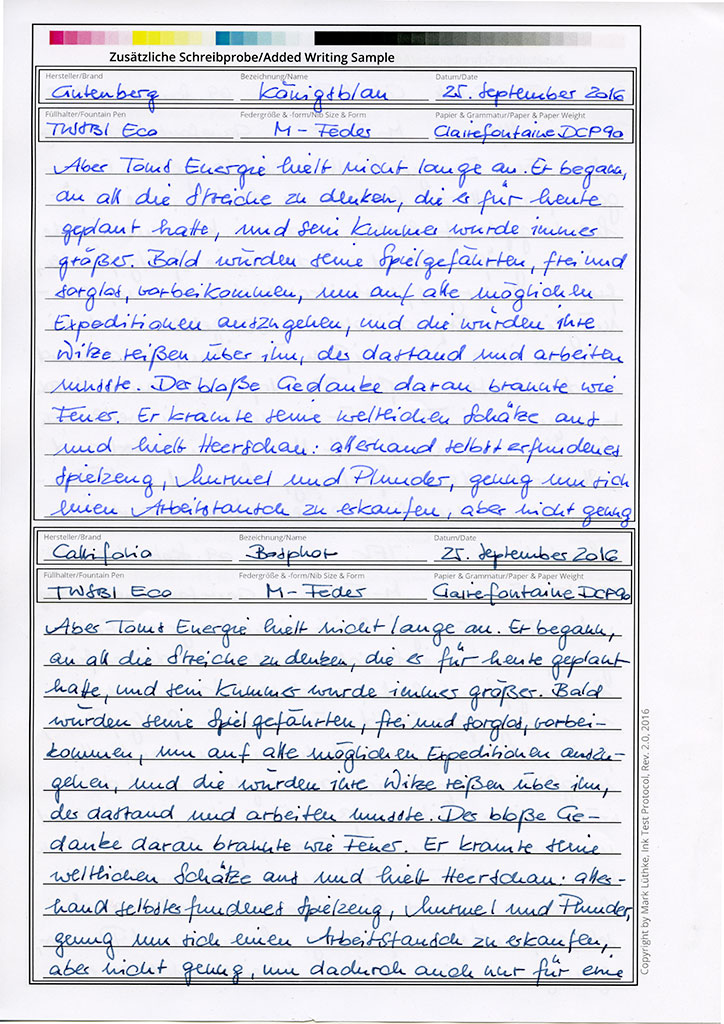 Zusätzliche Schreibprobe/Added Writing Sample
Hersteller/Brand Bezeichnung/Name Datum/Date
Gutenberg Königsblau 25. September 2016
Füllhalter/Fountain Pen Federgröße & -form/Nib Size & Form Papier & Grammatur/Paper & Paper Weight
TWSBI Eco M-Feder Clairefontaine DCP 90
Aber Toms Energie hielt nicht lange an. Er begann,
an all die Streiche zu denken, die er für heute
geplant hatte, und sein Kummer wurde immer
größer. Bald würden seine Spielgefährten, frei und
sorglos, vorbeikommen, um auf alle möglichen
Expeditionen auszugehen, und die würden ihre
Witze reißen über ihn, der dastand und arbeiten
musste. Der bloße Gedanke daran brannte wie
Feuer. Er kramte seine weltlichen Schätze aus
und hielt Heerschau: allerhand selbst erfundenes
Spielzeug, Murmel und Plunder, genug um sich
einen Arbeitstausch zu erkaufen, aber nicht genug
Hersteller/Brand Bezeichnung/Name Datum/Date
Callifolio Bosphor 25. September 2016
Füllhalter/Fountain Pen Federgröße & -form/Nib Size & Form Papier & Grammatur/Paper & Paper Weight
TWSBI Eco M-Feder Clairefontaine DCP 90
Aber Toms Energie hielt nicht lange an. Er begann,
an all die Streiche zu denken, die er für heute geplant
hatte, und sein Kummer wurde immer größer. Bald
würden seine Spielgefährten, frei und sorglos, vorbei-
kommen, um auf alle möglichen Expeditionen auszu-
gehen, und die würden ihre Witze reißen über ihn,
der dastand und arbeiten musste. Der bloße Ge-
danke daran brannte wie Feuer. Er kramte seine
weltlichen Schätze aus und hielt Heerschau: aller-
hand selbsterfundenes Spielzeug, Murmel und Plunder,
genug um sich einen Arbeitstausch zu erkaufen,
aber nicht genug, um dadurch auch nur für eine
Copyright by Mark Lüthke, Ink Test Protocol, Rev. 2.0, 2016